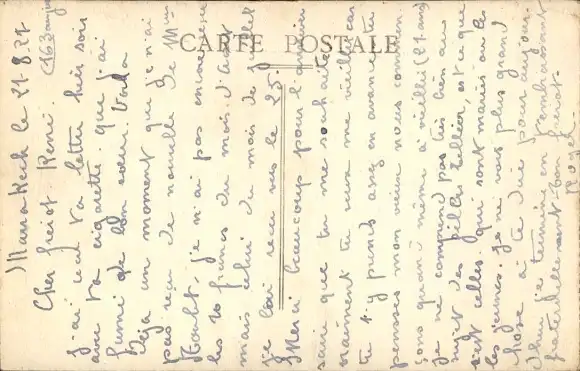 CARTE POSTALE
Marrakech le 21.8.27
Cher frérot René. (163 aujus
j'ai reçu ta lettre hier soir
avec ta cigarette que j'ai
fumé de bon cœur. Voilà
Déjà un moment que je n'ai
pas reçu de nouvelle de Mme
je n'ai pas encore reçu
les 20 francs du mois d'août
mais celui du mois de juillet
je l'ai reçu vers le 25.
Merci beaucoup pour l'anniver
saire que tu me souhaite
vraiment tu veux me vieillir car
tu t'y prends assez en avance tu
penses mon vieux nous commen
çons quand même à vieillir (21 ans)
je ne comprend pas très bien au
sujet des filles Tellier, est ce que
c'est celles qui sont mariés ou les
les jeunes. je ne vois plus grand
chose à te dire pour aujour-
d'hui je termine en t'embrassant
fraternellement ton frérot
Roger